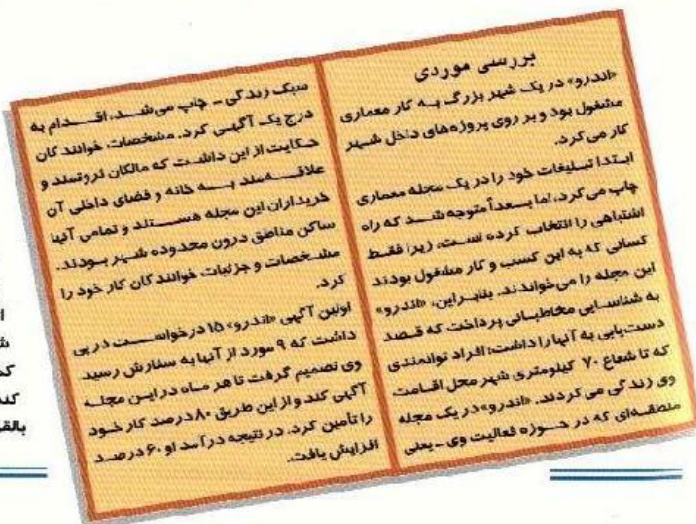 بررسی موردی
«اندرو» در یک شهر بزرگ به کار معماری
مشغول بود و بر روی پروژه‌های داخل شهر
کار می‌کرد.
ابتدا تبلیغات خود را در یک مجله معماری
چاپ می‌کرد، اما بعداً متوجه شد که راه
اشتباهی را انتخاب کرده است، زیرا فقط
کسانی که به این کسب و کار مشغول بودند
این مجله را می‌خواندند. بنابراین، «اندرو»
به شناسایی مخاطبانی پرداخت که قصد
دست‌یابی به آنها را داشت: افراد توانمندی
که تا شعاع ۷۰ کیلومتری شهر محل اقامت
وی زندگی می‌کردند. «اندرو» در یک مجله
منطقه‌ای که در حوزه فعالیت وی - یعنی
سبک زندگی - چاپ می‌شد، اقدام به
درج یک آگهی کرد. مشخصات خوانندگان
حکایت از این داشت که مالکان ثروتمند و
علاقه‌مند به خانه و فضای داخلی آن
خریداران این مجله هستند و تمامی آنها
ساکن مناطق درون محدوده شهر بودند.
مشخصات و جزئیات خوانندگان کار خود را
کرد.
اولین آگهی «اندرو» ۱۵ درخواست در پی
داشت که ۹ مورد از آنها به سفارش رسید.
وی تصمیم گرفت تا هر ماه در این مجله
آگهی کند و از این طریق ۸۰ درصد کار خود
را تأمین کرد. در نتیجه درآمد او ۶۰ درصد
افزایش یافت.